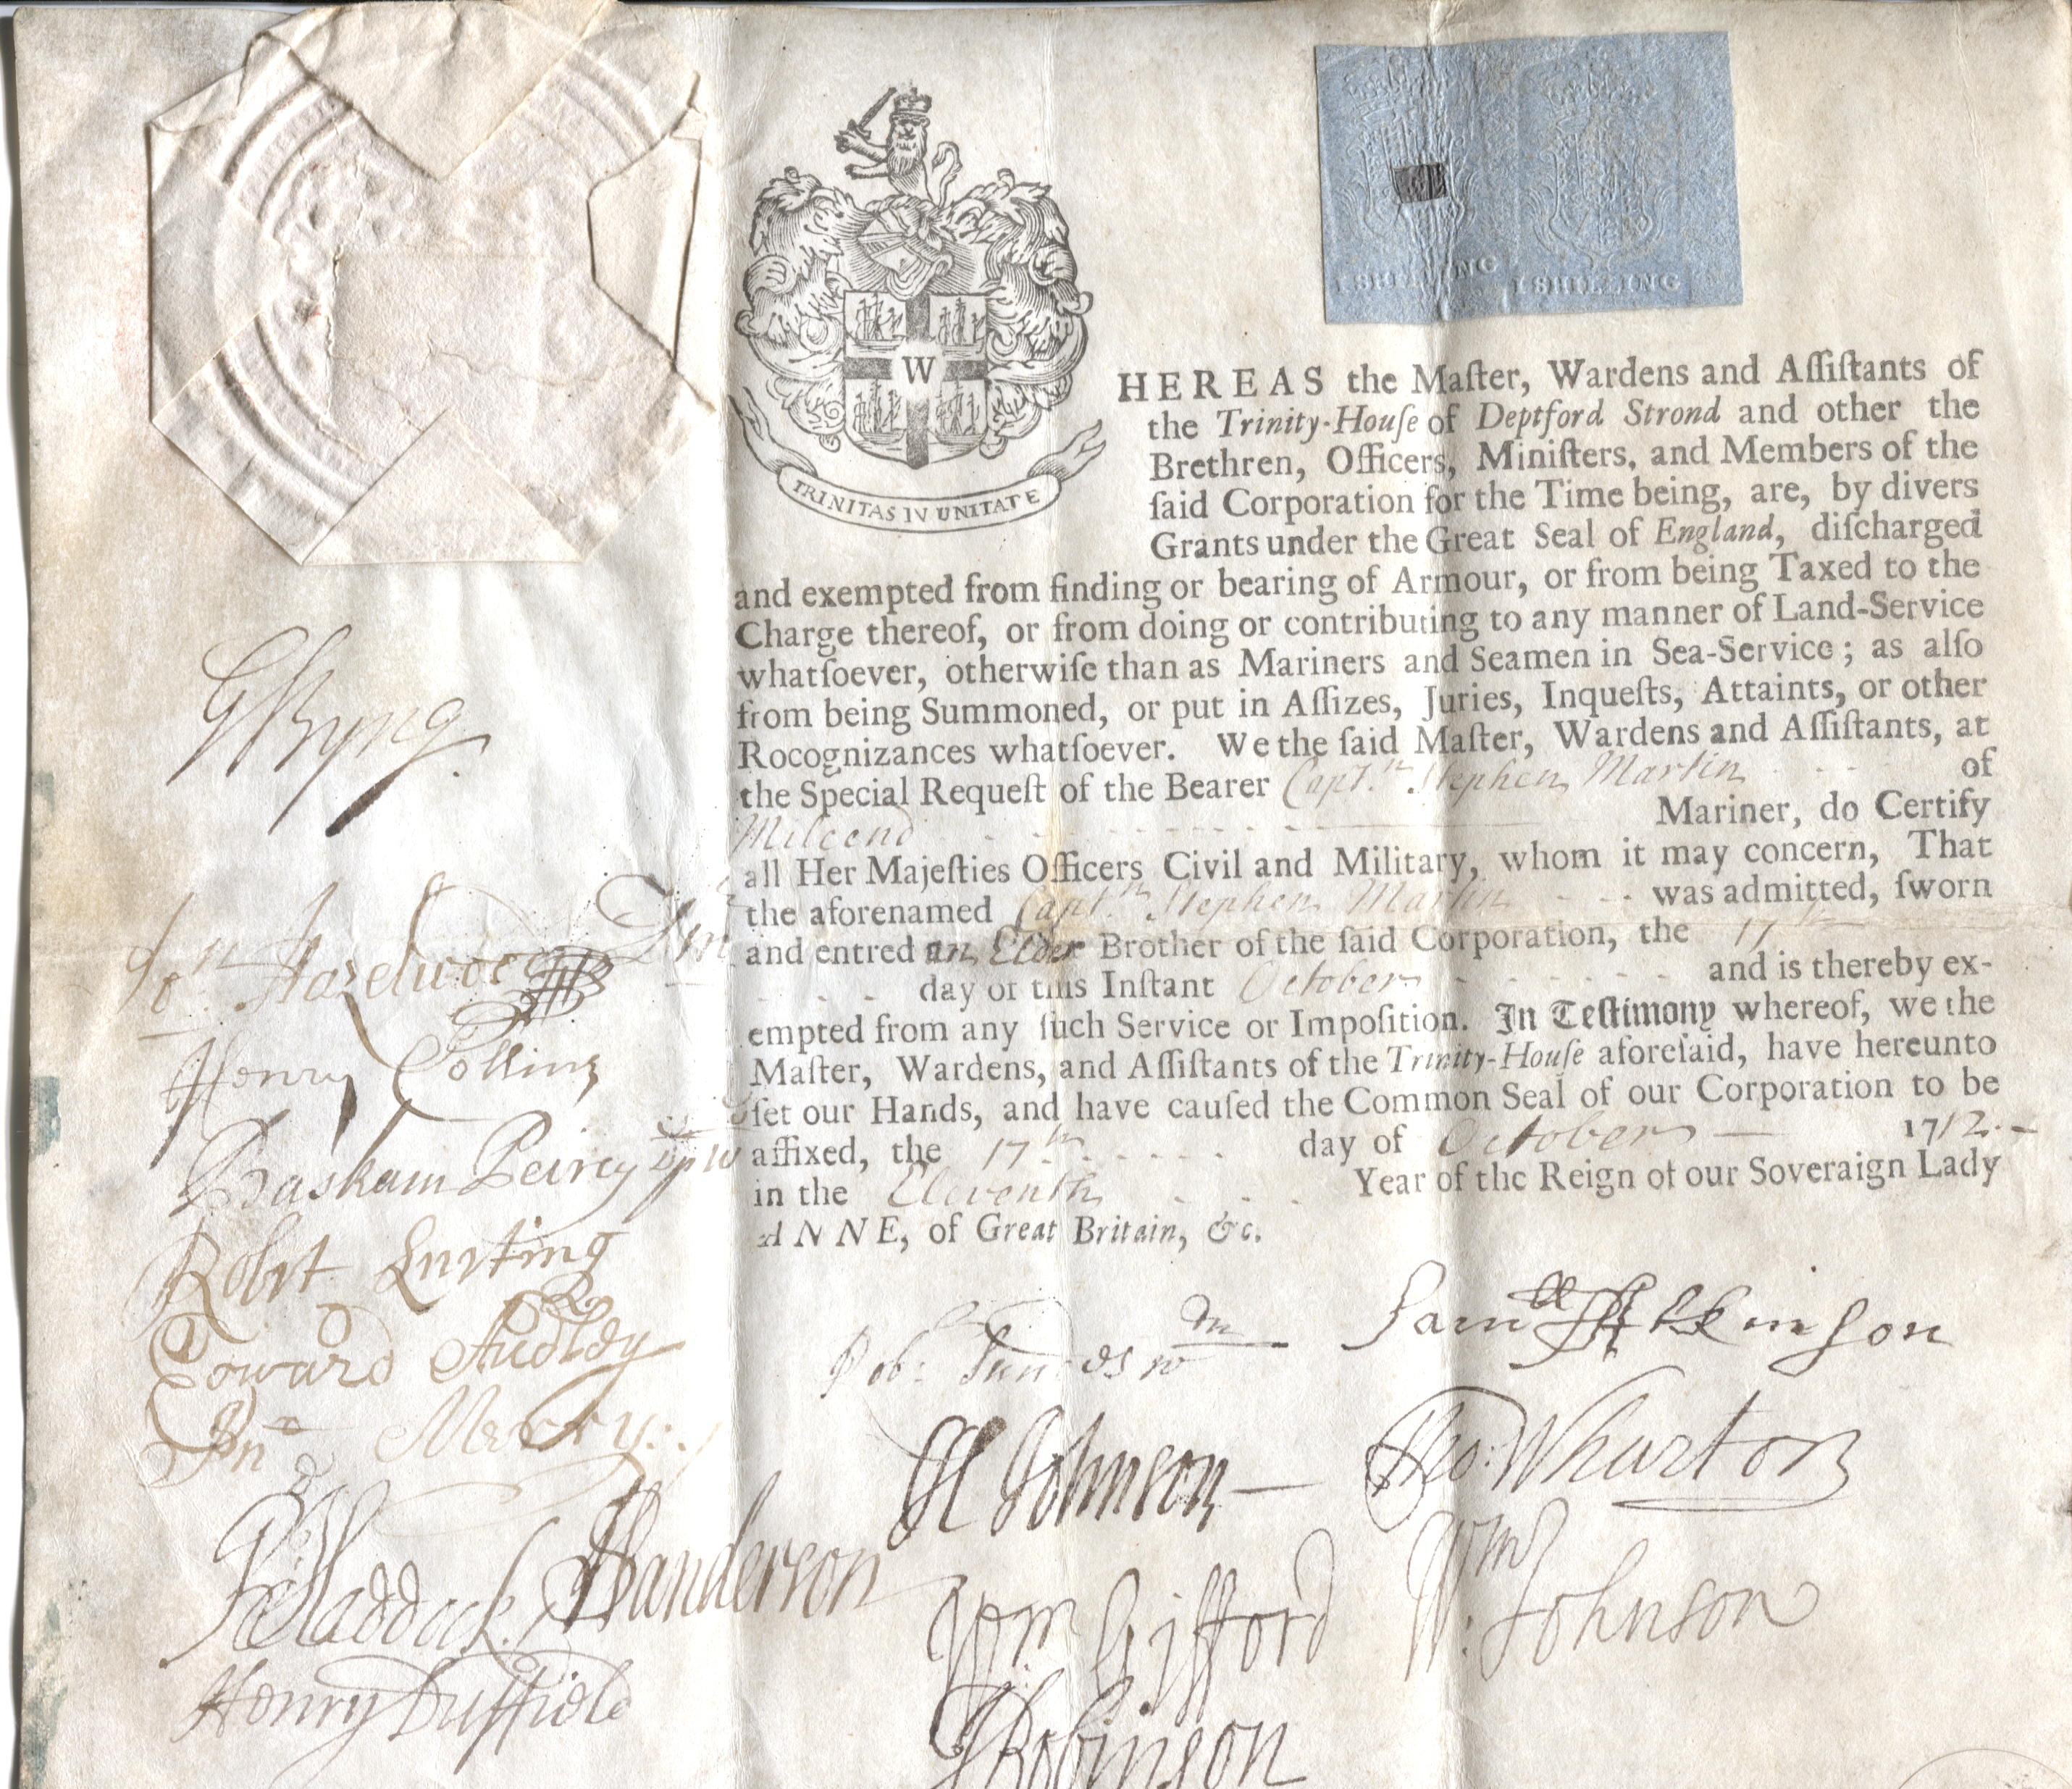 I SHILLING I SHILLING
W
TRINITAS IN UNITATE
HEREAS the Maſter, Wardens and Aſſiſtants of
the Trinity-Houſe of Deptford Strond and other the
Brethren, Officers, Miniſters, and Members of the
ſaid Corporation for the Time being, are, by divers
Grants under the Great Seal of England, diſcharged
and exempted from finding or bearing of Armour, or from being Taxed to the
Charge thereof, or from doing or contributing to any manner of Land-Service
whatſoever, otherwiſe than as Mariners and Seamen in Sea-Service; as alſo
from being Summoned, or put in Aſſizes, Juries, Inqueſts, Attaints, or other
Rocognizances whatſoever. We the ſaid Maſter, Wardens and Aſſiſtants, at
the Special Requeſt of the Bearer Capt.n Stephen Martin of
Mileend Mariner, do Certify
all Her Majeſties Officers Civil and Military, whom it may concern, That
the aforenamed Capt.n Stephen Martin was admitted, ſworn
and entred an Elder Brother of the ſaid Corporation, the 17th
day of this Inſtant October and is thereby ex-
empted from any ſuch Service or Impoſition. In Teſtimony whereof, we the
Maſter, Wardens, and Aſſiſtants of the Trinity-Houſe aforeſaid, have hereunto
ſet our Hands, and have cauſed the Common Seal of our Corporation to be
affixed, the 17th day of October 1712.
in the Eleventh Year of the Reign of our Soveraign Lady
ANNE, of Great Britain, &c.
GByng
Jon Hazelwood
Henry Collins
Baskam Peircy
Robrt Lurting
Edward Audley
Jno Merry
R Haddock
Sanderson
Henry Duffield
Rob:
H Johnson
Wm Gifford
Robinson
Samll Atkinson
Tho: Wharton
Wm Johnson